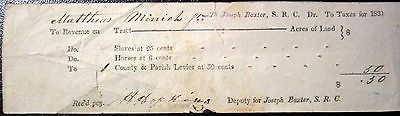 Matthias Minich jr To Joseph Baxter, S. R. C. Dr. To Taxes for 1831
To Revenue on Tract Acres of Land $
Do. Slaves at 25 cents
Do. Horses at 6 cents
To 1 County & Parish Levies at 50 cents .50
$ .50
Rec'd pay. Deputy for Joseph Baxter, S. R. C.